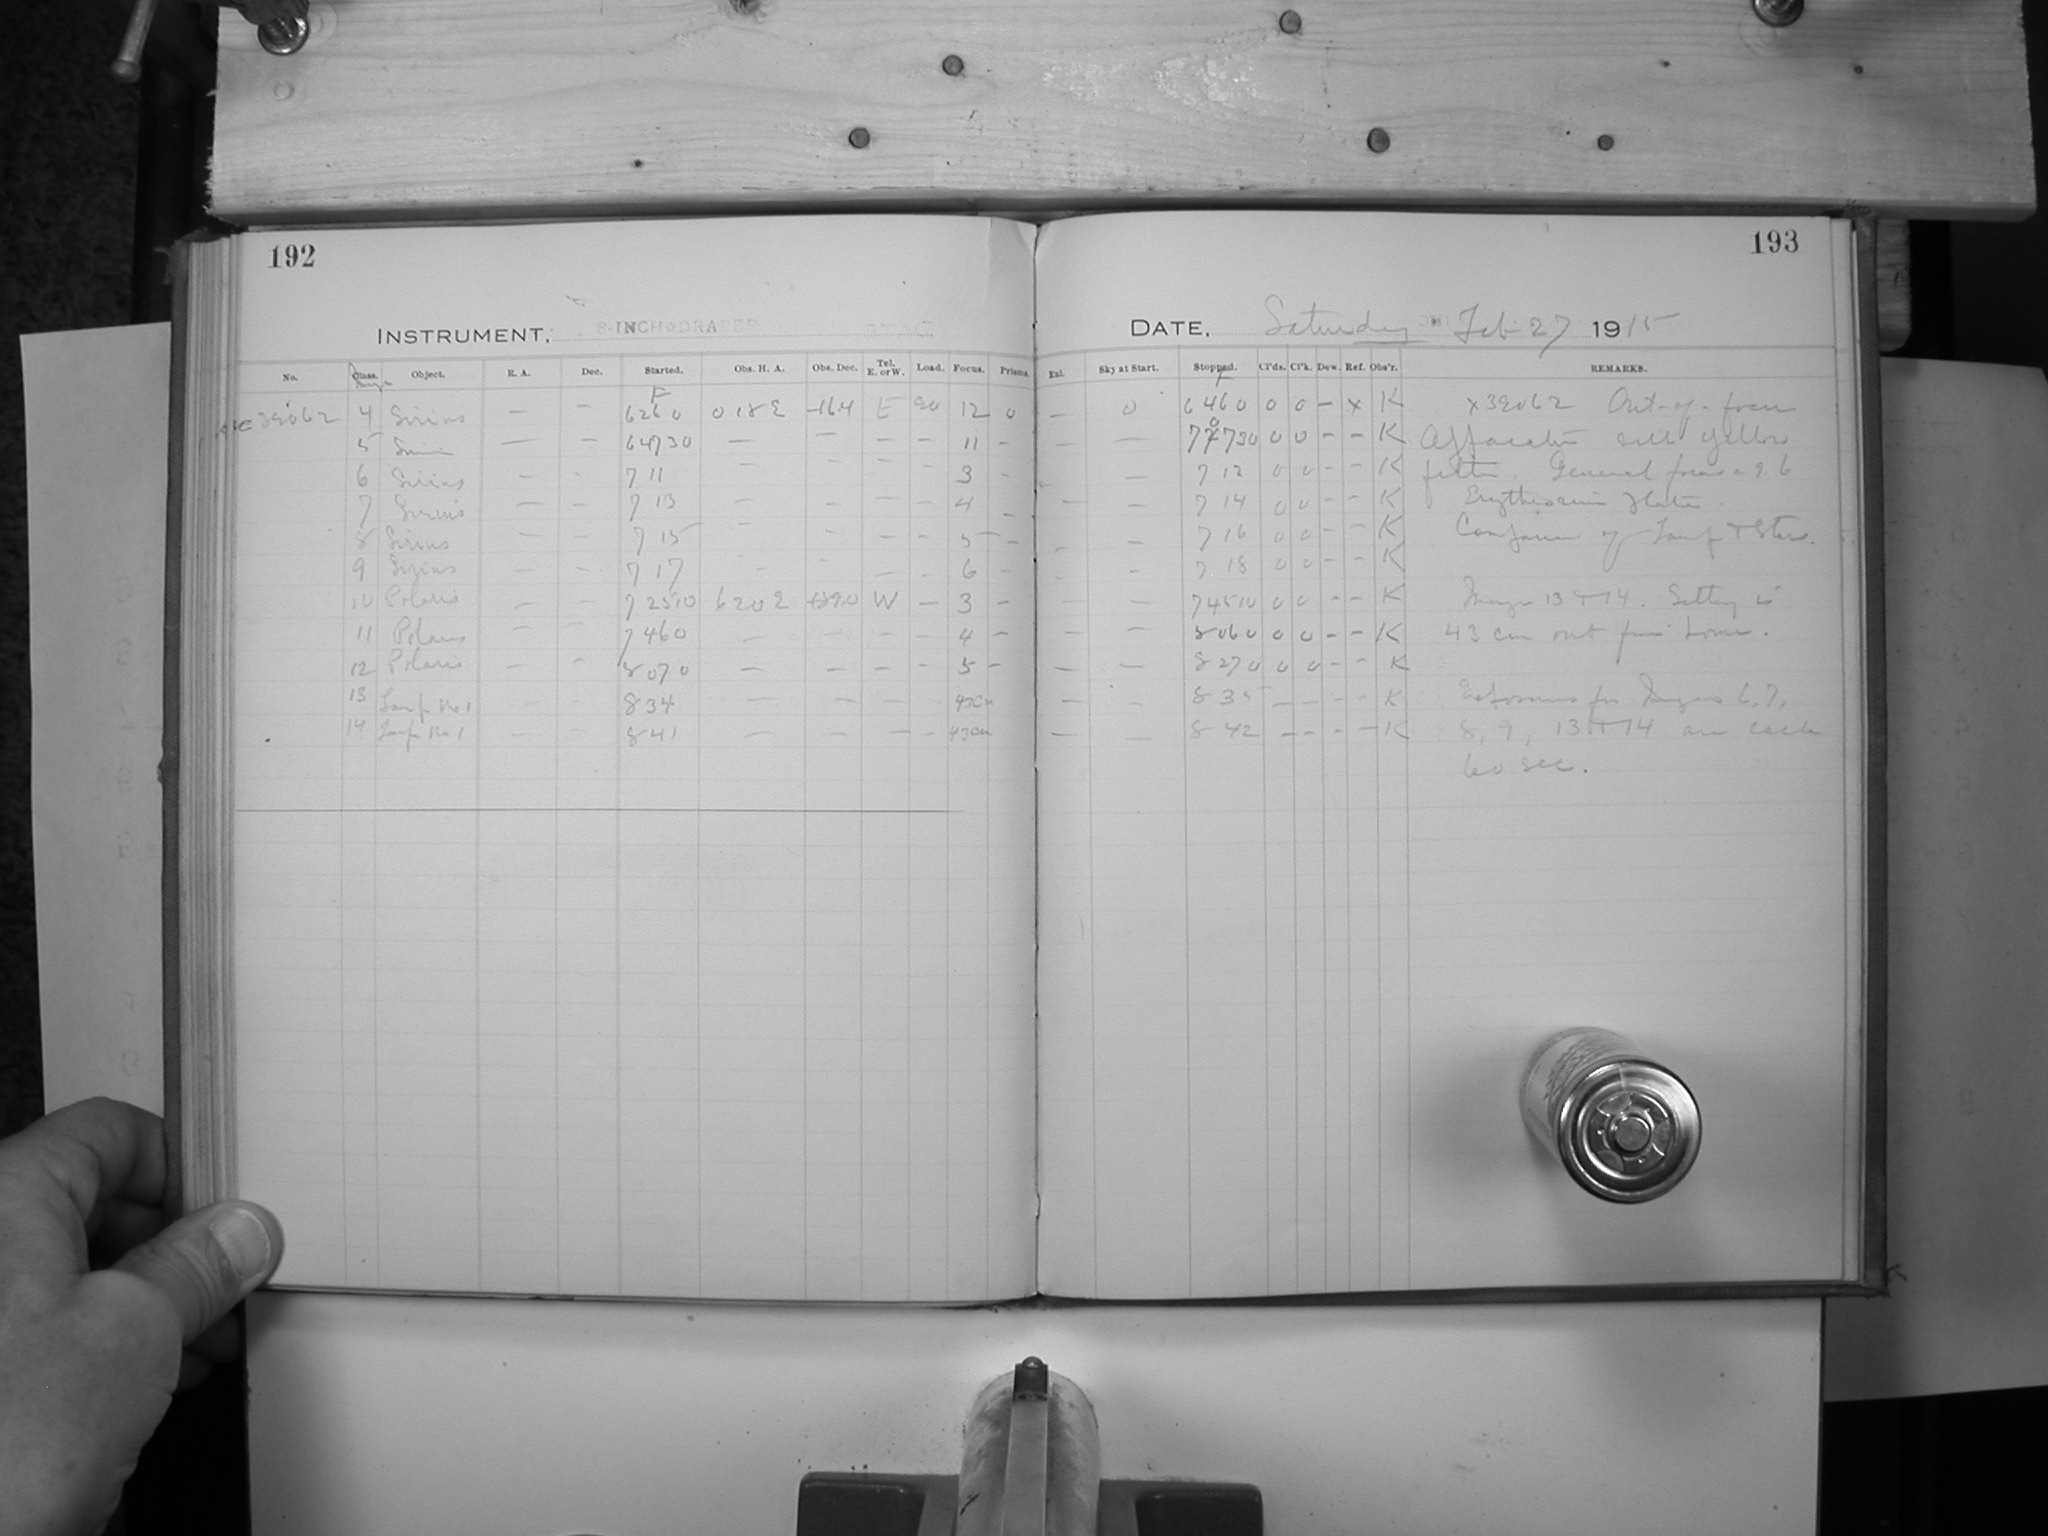 192
193
INSTRUMENT, 8-INCH DRAPER
DATE, Saturday Feb 27 1915
No. Class. Object. R. A. Dec. Started. Obs. H. A. Obs. Dec. Tel. E. or W. Load. Focus. Prisms. Enl. Sky at Start. Stopped. Cl'ds. Cl'k. Dew. Ref. Obs'r. REMARKS.
Image
F F
39062 4 Sirius — — 6 26 0 0 18 E -16.4 E 90 12 0 — 0 6 46 0 0 0 – x K x39062 Out-of-focus
5 — — 6 47 30 — — — — — 11 – — — 7 7 30 0 0 – – K Apparatus with yellow
6 Sirius — – 7 11 — — – – 3 – — 7 12 0 0 – – K filter. General focus = 9.6
7 Sirius — – 7 13 — – – – 4 – — – 7 14 0 0 – – K Erythrosin Plate.
8 Sirius – – 7 15 – – – – 5 – – – 7 16 0 0 – – K Comparison of Lamp & Stars.
9 Sirius – – 7 17 – – – – 6 – – – 7 18 0 0 – – K
10 Polaris – – 7 25 10 6 20 E +89.0 W – 3 – — — 7 45 10 0 0 – – K Images 13 & 14. Setting is
11 Polaris – – 7 46 0 – – – – 4 – — – 8 06 0 0 0 – – K 43 cm out from home.
12 Polaris – – 8 07 0 — – – – 5 – — — 8 27 0 0 0 – – K
13 Lamp No 1 – – 8 34 — – – – 43cm — – 8 35 – – – – K Exposures for Images 6, 7,
14 Lamp No 1 – – 8 41 — – – – 43cm — — 8 42 – – – – K 8, 9, 13 & 14 are each
60 sec.